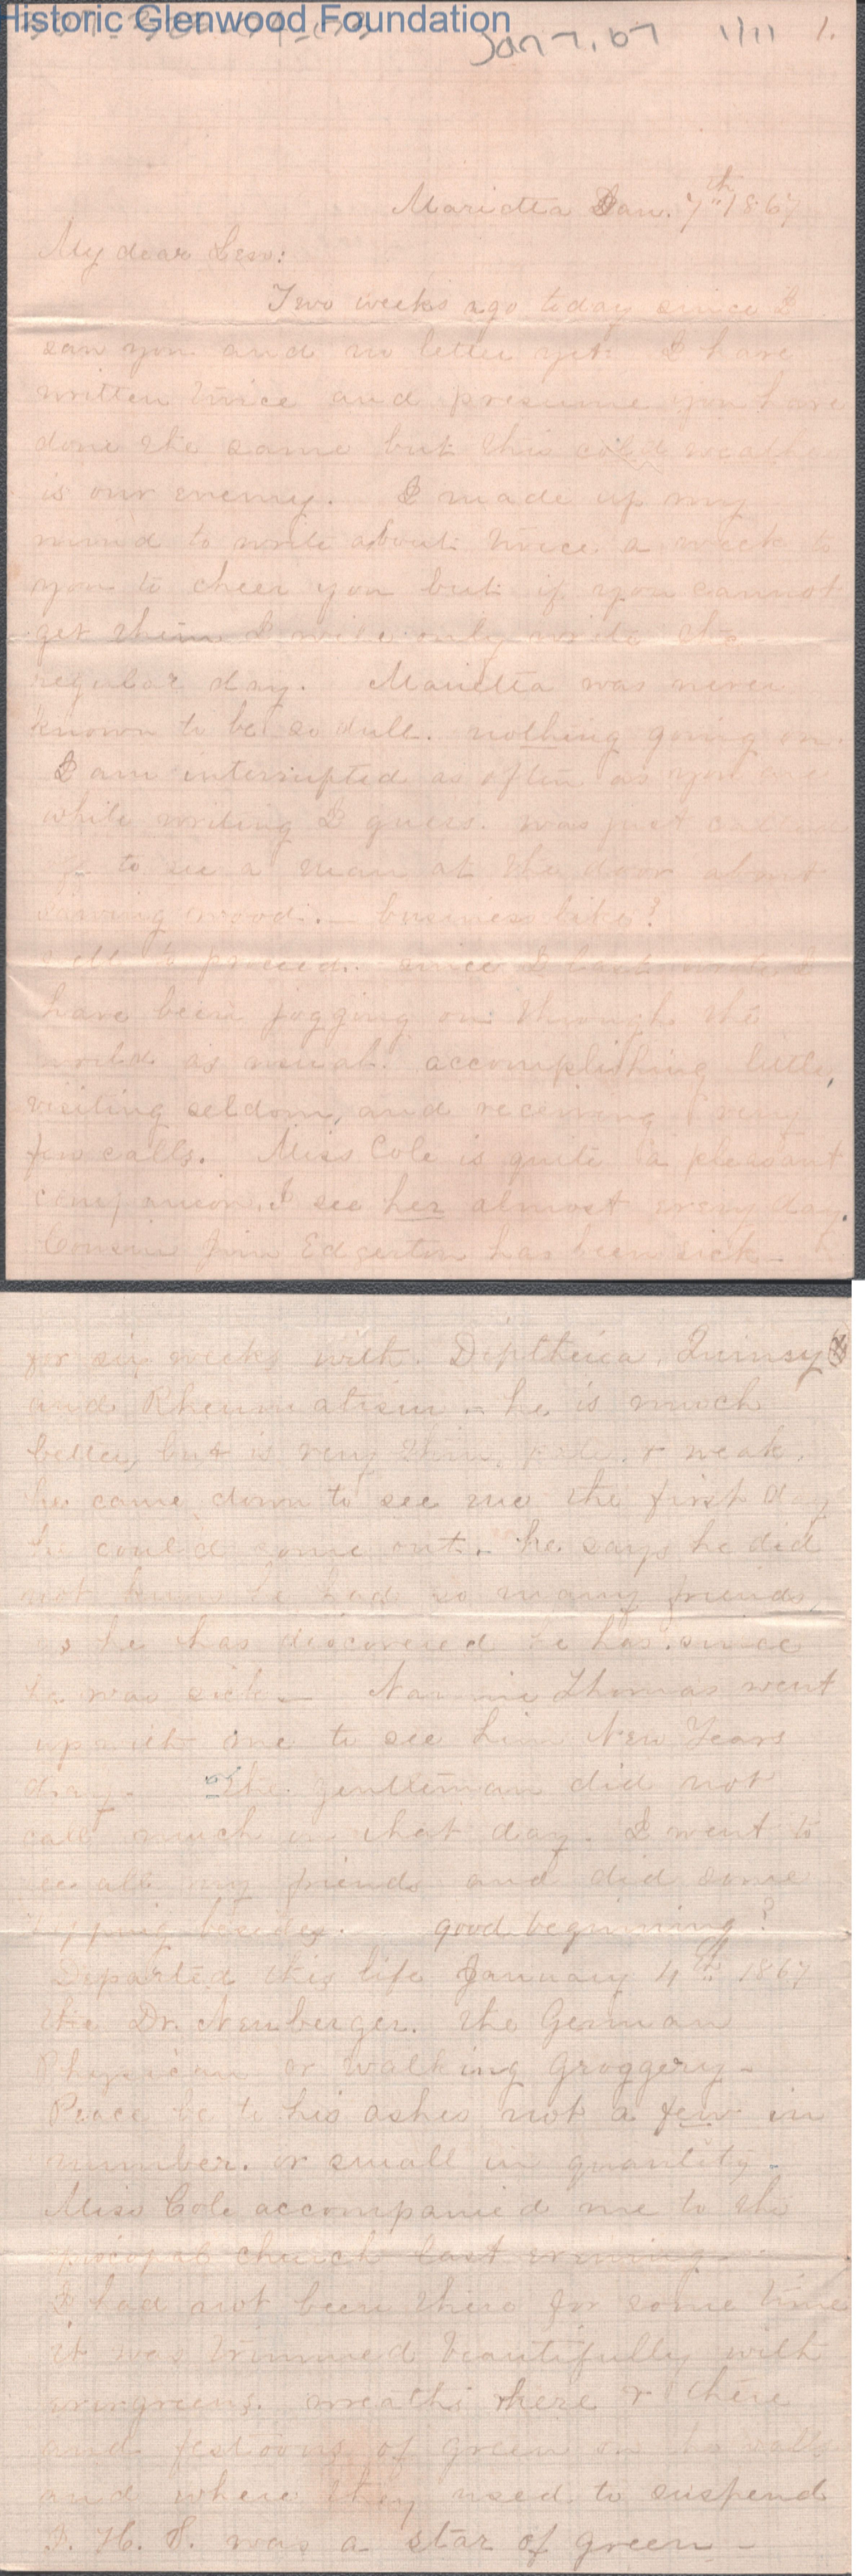 Historic Glenwood Foundation
Jan 7, 67 1/11 1.
Marietta Jan. 7th 1867
My dear Lew:
Two weeks ago today since I
saw you and no letter yet. I have
written twice and presume you have
done the same but this cold weather
is our enemy. I made up my
mind to write about twice a week to
you to cheer you but if you cannot
get them I will only write the
regular day. Marietta was never
known to be so dull. nothing going on.
I am interrupted as often as you are
while writing I guess. was just called
to see a man at the door about
sawing wood. — business like?
Well to proceed. since I last wrote I
have been jogging on through the
world as usual. accomplishing little,
visiting seldom, and receiving very
few calls. Miss Cole is quite a pleasant
companion. I see her almost every day.
Cousin Jim Edgerton has been sick
for six weeks with Diptheria, Quinsy
and Rheumatism — he is much
better, but is very thin, pale, & weak.
he came down to see me the first day
he could come out. he says he did
not know he had so many friends,
as he has discovered he has since
he was sick — Nannie Thomas went
up with me to see him New Years
day. The gentleman did not
call much on that day. I went to
see all my friends and did some
besides. good beginning?
Departed this life January 4th 1867
the Dr. Newberger. the German
Physician or walking Groggery —
Peace be to his ashes not a few in
number. or small in quantity —
Miss Cole accompanied me to the
Episcopal church last evening —
I had not been there for some time
it was trimmed beautifully with
evergreens. wreaths here & there
and festoons of green on the walls
and where they used to suspend
I. H. S. was a star of green —